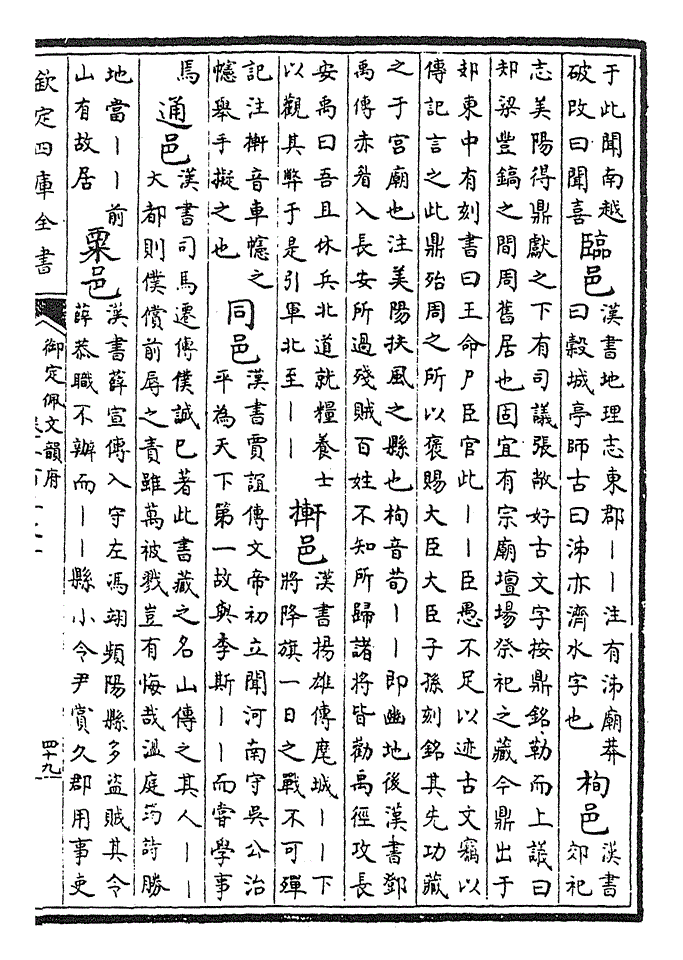 于此聞南越
破改曰聞喜
臨邑
漢書地理志東郡丨丨注有泲廟莽
曰穀城亭師古曰泲亦濟水字也
栒邑
漢書
郊祀
志美陽得鼎獻之下有司議張敞好古文字按鼎銘勒而上議曰
却梁豐鎬之間周舊居也固宜有宗廟壇場祭祀之藏今鼎出于
郊東中有刻書曰王命尸臣官此丨丨臣愚不足以迹古文竊以
傳記言之此鼎殆周之所以褒賜大臣大臣子孫刻銘其先功藏
之于宫廟也注美陽扶風之縣也栒音荀丨丨即豳地後漢書鄧
禹傳赤眉入長安所過殘賊百姓不知所歸諸將皆勸禹徑攻長
安禹曰吾且休兵北道就糧養士
以觀其弊于是引軍北至丨丨
摲邑
漢書揚雄傳麾城丨丨下
將降旗一日之戰不可殫
記注摲音車幰之
幰舉手擬之也
同邑
漢書賈誼傳文帝初立聞河南守吳公治
平為天下第一故與李斯丨丨而嘗學事
馬
通邑
漢書司馬遷傳僕誠已著此書藏之名山傳之其人丨丨
大都則僕償前辱之責雖萬被戮豈有悔哉溫庭筠詩勝
地當丨丨前
山有故居
粟邑
漢書薛宣傳入守左馮翊頻陽縣多盗賊其令
薛恭職不辦而丨丨縣小令尹賞久郡用事吏
欽定四庫全書
御定佩文韻府
四十九